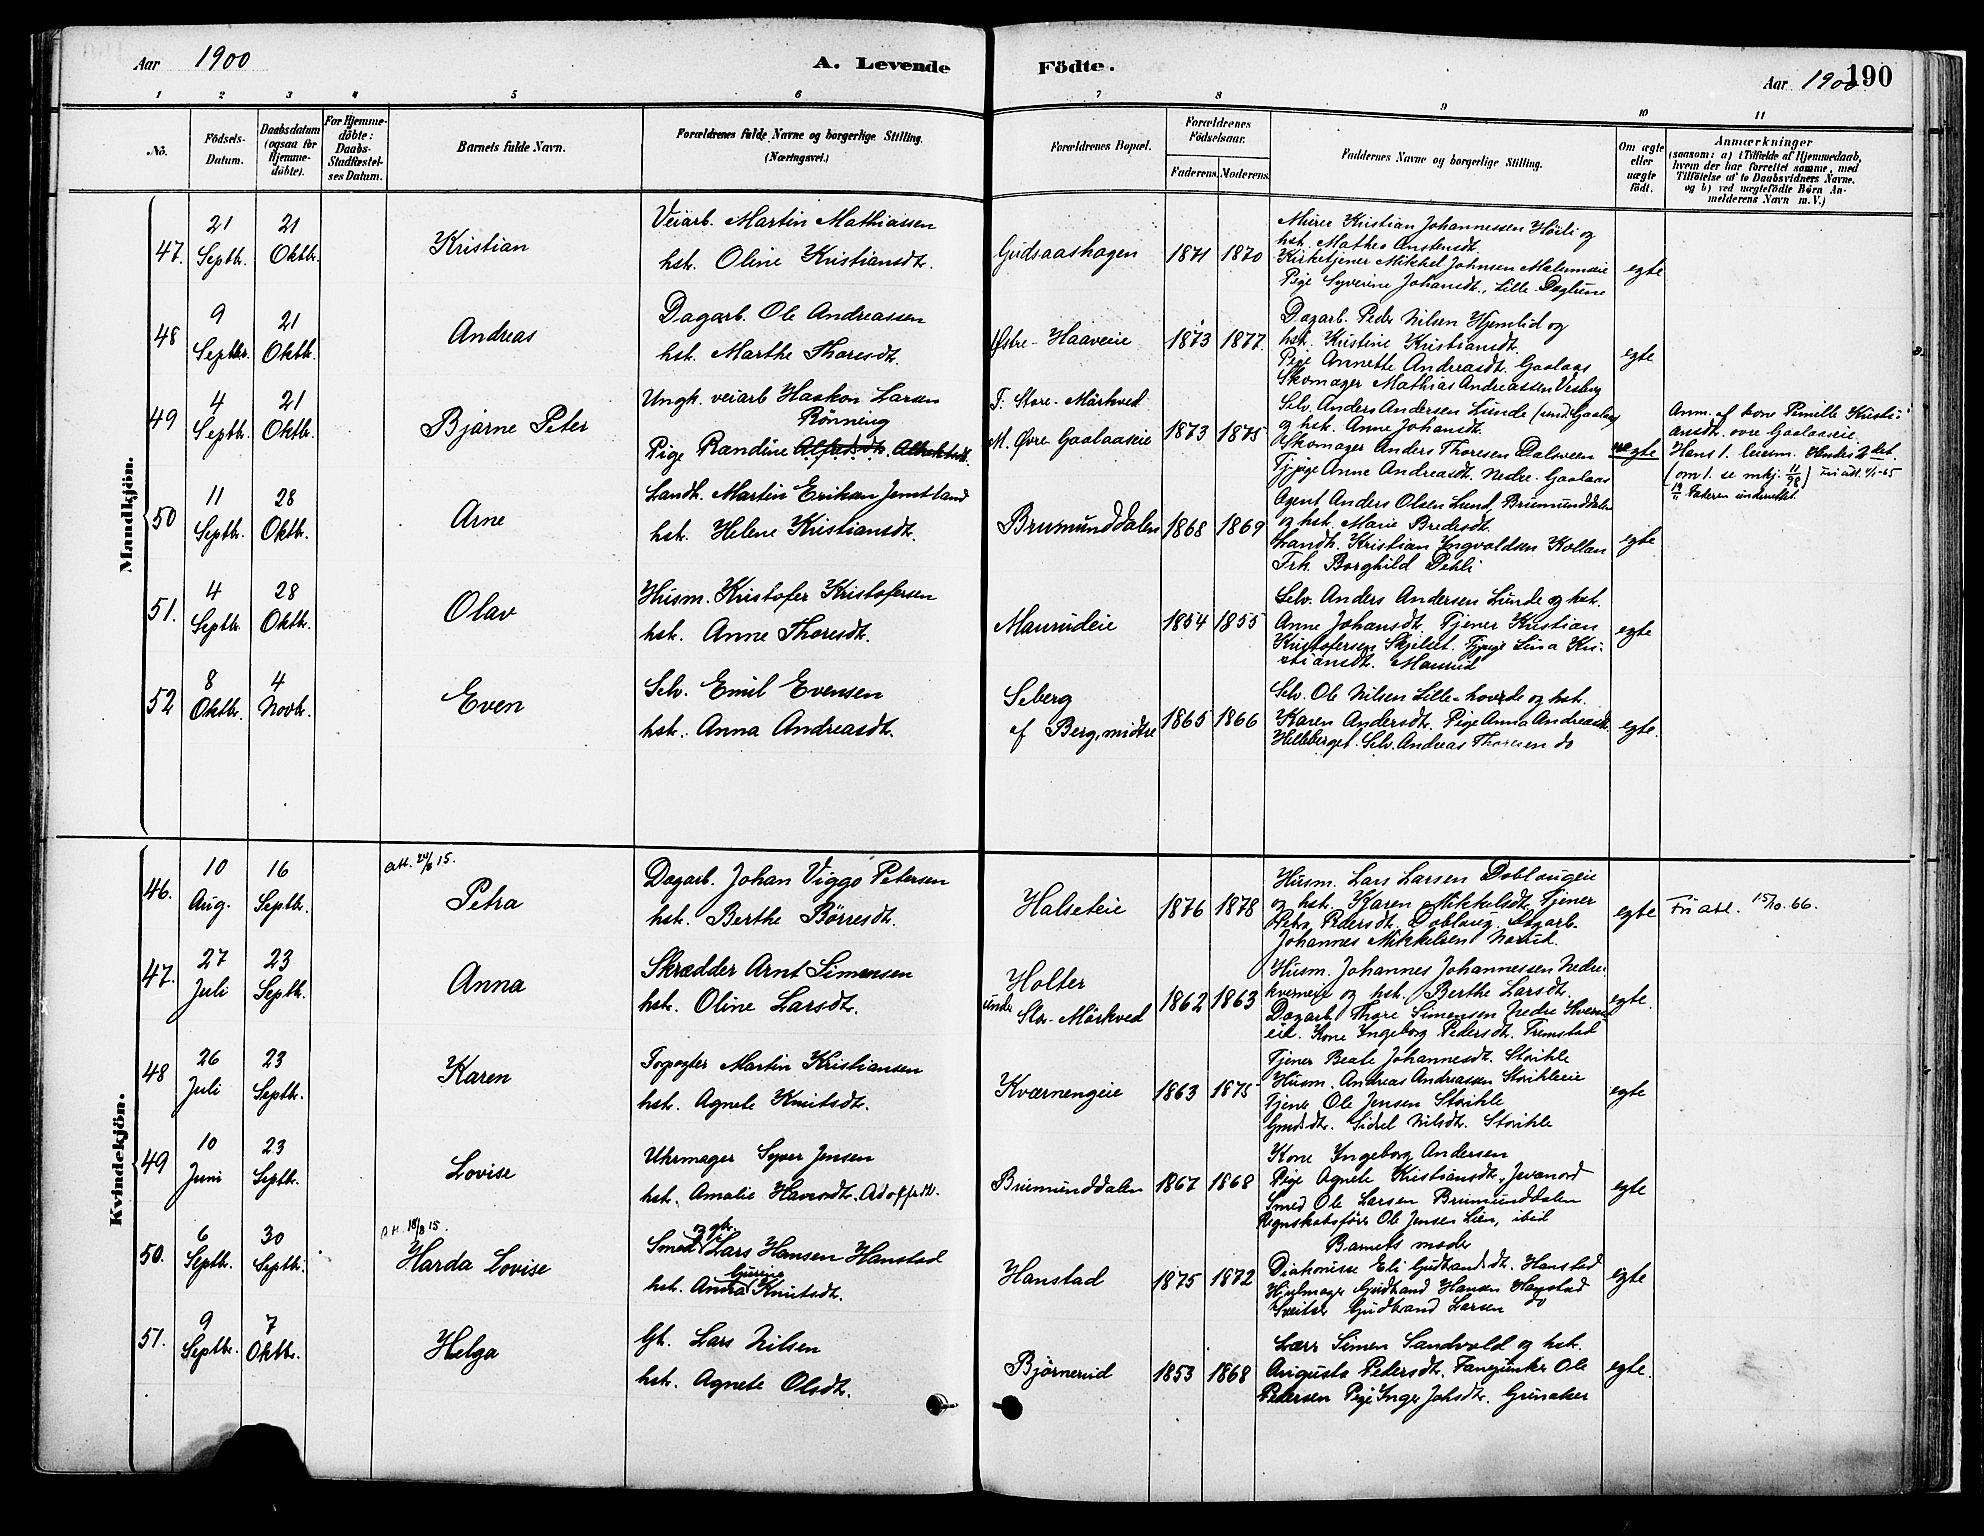 Aar 1900
A. Levende Födte.
Aar 1900 190
1 2 3 4 5 6 7 8 9 10 11
No.
Födsels-Datum.
Daabsdatum (ogsaa for Hjemmedöbte).
For Hjemmedöbte: Daabs-Stadfæstelses Datum.
Barnets fulde Navn.
Forældrenes fulde Navne og borgerlige Stilling. (Næringsvei.)
Forældrenes Bopæl.
Forældrenes Födselsaar.
Faderens. Moderens.
Faddernes Navne og borgerlige Stilling.
Om ægte eller uægte födt.
Anmærkninger
(saasom: a) i Tilfælde af Hjemmedaab, hvem der har forrettet samme, med Tilföielse af to Daabsvidners Navne, og b) ved uægtefödte Börn Anmelderens Navn m. V.)
Mandkjön.
47. 21 Septbr. 21 Oktbr. Kristian
Veiarb. Martin Mathiassen
hst. Oline Kristiansdt.
Gudsaashagen 1871 1870
Murer Kristian Johannessen Höili og
hst. Mathea Anstensdt.
Kirketjener Mikkel Johnsen
Pige Syverine Johansdt., Lille-
egte
48 9 Septbr. 21 Oktbr. Andreas
Dagarb. Ole Andreassen
hst. Marthe Thoresdt.
Østre-Haaveie 1873 1877.
Dagarb. Peder Nilsen Hjemlid og
hst. Kristine Kristiansdt.
Pige Annette Andreasdt. Gaalaas
Skomager Mathias Andreassen
egte
49 4 Septbr. 21 Oktbr. Bjarne Peter
Ungk. veiarb Haakon Larsen
Rönning
Pige Randine Alfredsdt. Albrektsdt.
F: Store-Mörkved
M. Øvre Gaalaaseie 1873 1875
Selv. Anders Andersen Lunde (und. Gaalaas)
og hst. Anne Johansdt.
Skomager Anders Thoresen Dalsveen
Tjpige Anne Andreasdt. Nedre-Gaalaas
uegte
Anm. af kone Pernille Kristi-
ansdt. øvre Gaalaaseie.
Hans 1. leierm. Hendes 2det.
(om 1. se mkj. 11/98)
Faderen underrettet
50 11 Septbr. 28 Oktbr. Arne
Landh. Martin Eriksen Jemtland
hst. Helene Kristiansdt.
Brumunddalen 1868 1869
Agent Anders Olsen Lund, Brumunddalen
og hst. Marie Bredesdt.
Landh. Kristian Ingvoldsen Kollan
Frk. Borghild Dehli
egte
51. 4 Septbr. 28 Oktbr. Olav
Husm. Kristofer Kristofersen
hst. Anne Thoresdt.
Maurudeie 1854 1855
Selv. Anders Andersen Lunde og hst.
Anne Johansdt. Tjener Kristian
Kristofersen Skjelset. Tjpige Lina Kri-
stiansdt. Maurud
egte
52 8 Oktbr. 4 Novbr. Even
Selv. Emil Evensen
hst. Anna Andreasdt.
Seberg
af Berg, midtre 1865 1866
Selv. Ole Nilsen Lille-hovde og hst.
Karen Andersdt. Pige Anna Andreasdt.
Helleberget. Selv. Andreas Thoresen do
egte.
Kvindekjön.
46. 10 Aug. 16 Septbr. Att. 24/8 15. Petra
Dagarb. Johan Viggo Petersen
hst. Berthe Börresdt.
Halseteie 1876 1878
Husm. Lars Larsen Doblougeie
og hst. Karen Mikkelsdt. Tjener
Petra Pedersdt. Doblaug. Dagarb.
Johannes Mikkelsen Narud.
egte Fri att. 15/10.66.
47. 27 Juli 23 Septbr. Anna
Skrædder Arnt Simensen
hst. Oline Larsdt.
Holter
under Stor-Mörkved 1862 1863
Husm. Johannes Johannessen Nedre-
kverneie og hst. Berthe Larsdt.
Dagarb. Thore Simensen Nedre Kvern-
eie. Kone Ingeborg Pedersdt. Fremstad
egte.
48 26 Juli 23 Septbr. Karen
Torpagter Martin Kristiansen
hst. Agnete Knutsdt.
Kværnengeie 1863 1875
Tjener Beate Johannesdt. Storihle
Husm. Andreas Andreassen Storihleie
Tjener Ole Jensen Storihle
Gmdsdt. Sidsel Nilsdt. Storihle
egte
49 10 Juni 23 Septbr. Lovise
Uhrmager Syver Jensen
hst. Amalie Adolfsdt.
Brumunddalen 1867 1868
Kone Ingeborg Andersen
Pige Agnete Kristiansdt.
Smed Ole Larsen Brumunddalen
Regnskabsförer Ole Jensen Lien, ibid
egte
50. 6 Septbr. 30 Septbr. Att. 18/8 15. Harda Lovise
Smed og gbr. Lars Hansen Hanstad
hst. Anna Gurine Knutsdt.
Hanstad 1875 1872
Barnets moder
Diakonisse Eli Gudbrandsdt. Hanstad
Hjulmager Gudbrand Hansen Hanstad
Sveitser Gudbrand Larsen do
egte
51. 9 Septbr. 7 Oktbr. Helga
Gh. Lars Nilsen
hst. Agnete Olsdt.
Björnerud 1853 1868
Lærer Simen Sandvold og hst.
Augusta Pedersdt. Fanejunker Ole
Pedersen Pige Inger Johsdt. Grunaker
egte.